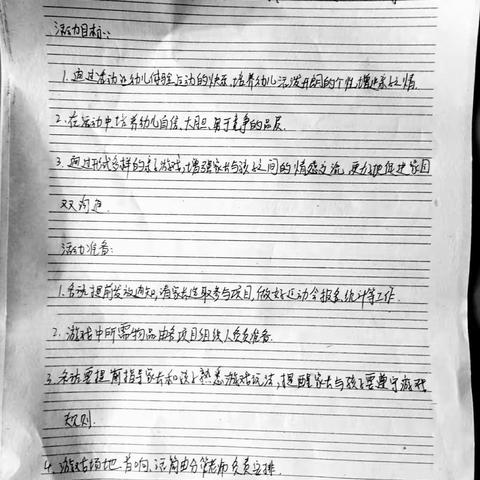 活动目标:
1.通过活动让幼儿体验运动的快乐,培养幼儿活泼开朗的个性,增进亲子之情.
2.在活动中培养幼儿自信、大胆、勇于竞争的品质.
3.通过形式多样的亲子游戏,增强家长与孩子之间的情感交流,更好地促进家园
双沟通.
活动准备:
1.各班提前发放通知,请家长选取参与项目,做好运动会报名统计等工作.
2.游戏中所需物品由各项目组织人负责准备.
3.活动要提前指导家长和孩子熟悉游戏玩法,提醒家长与孩子要遵守游戏
规则.
4.游戏场地、音响、话筒由分管老师负责安排.